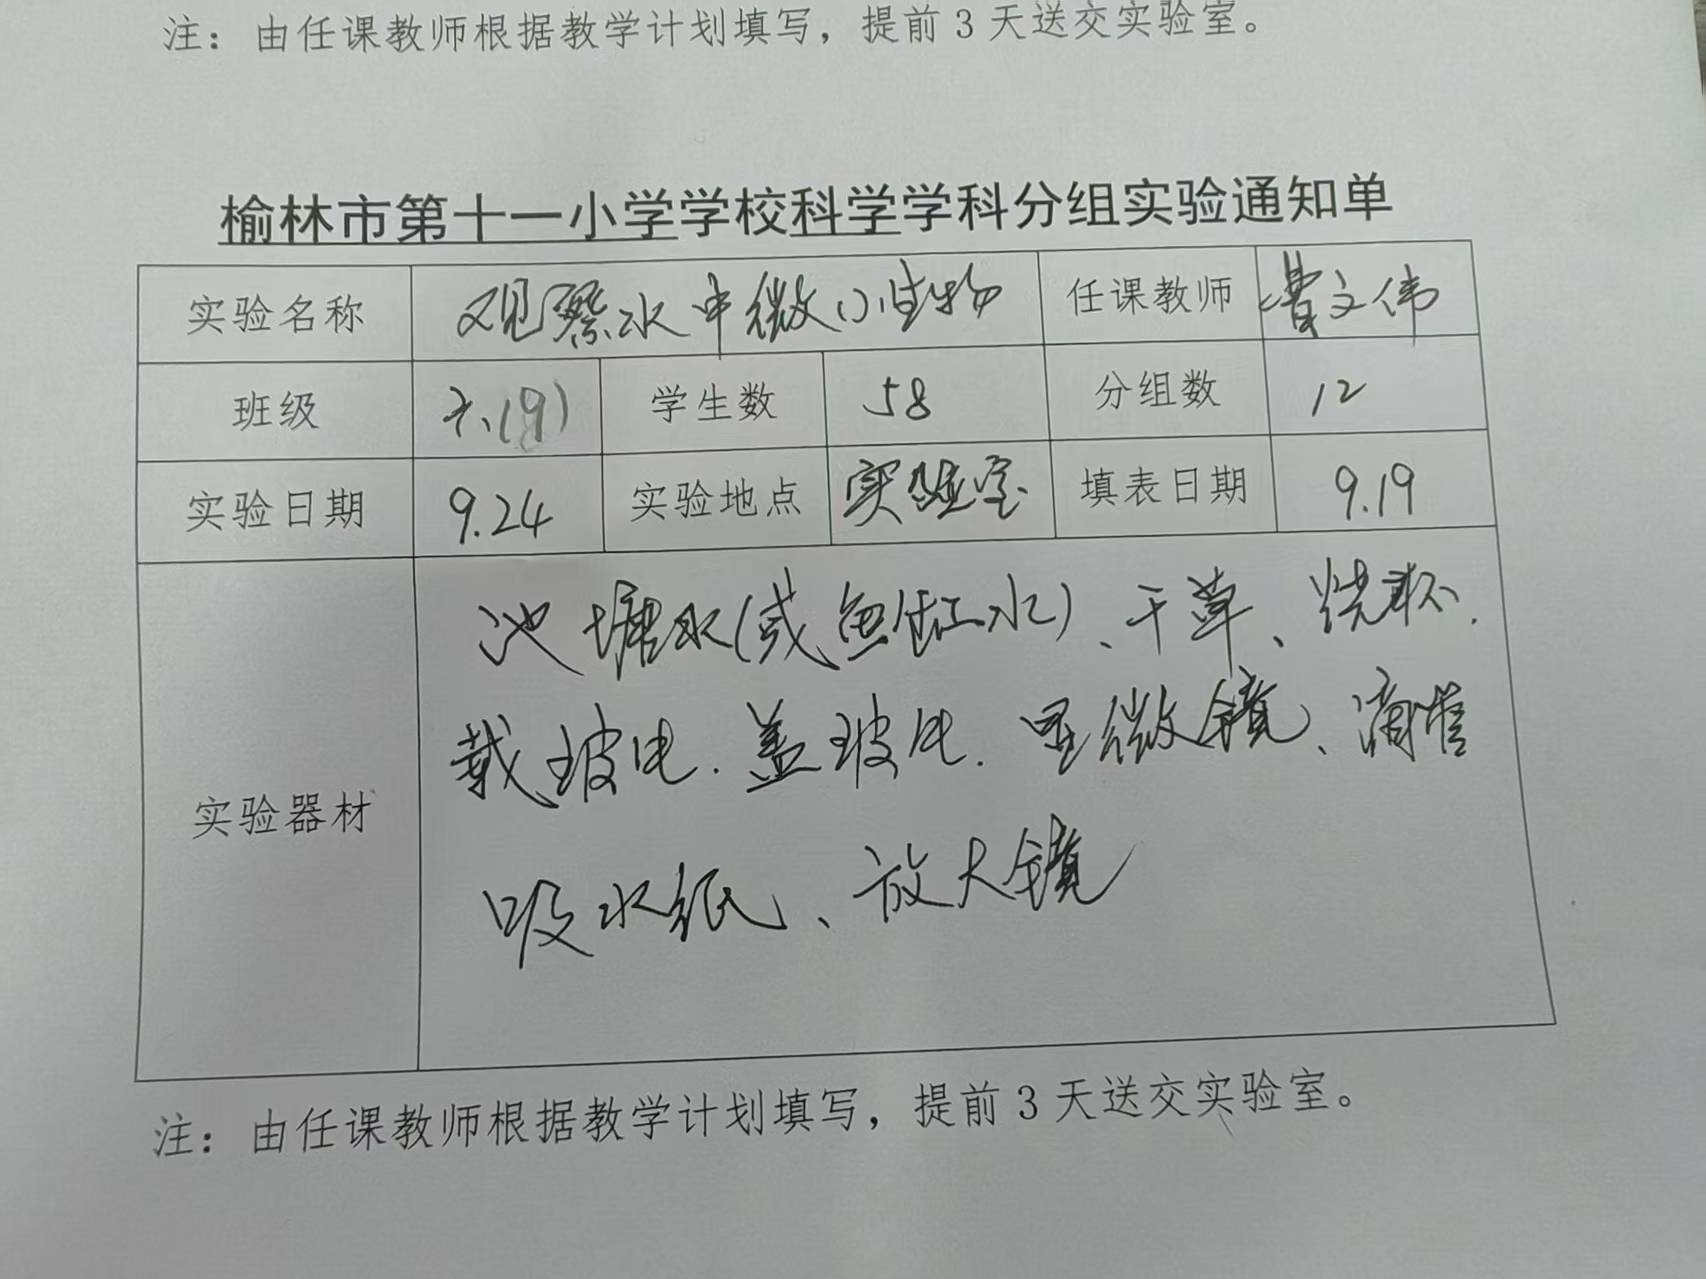 注：由任课教师根据教学计划填写，提前3天送交实验室。
榆林市第十一小学学校科学学科分组实验通知单
实验名称 观察水中微小生物 任课教师 曹文伟
班级 六(9) 学生数 58 分组数 12
实验日期 9.24 实验地点 实验室 填表日期 9.19
实验器材
池塘水(或鱼缸水)、干草、烧杯.
载玻片.盖玻片.显微镜、滴管
吸水纸、放大镜
注：由任课教师根据教学计划填写，提前3天送交实验室。